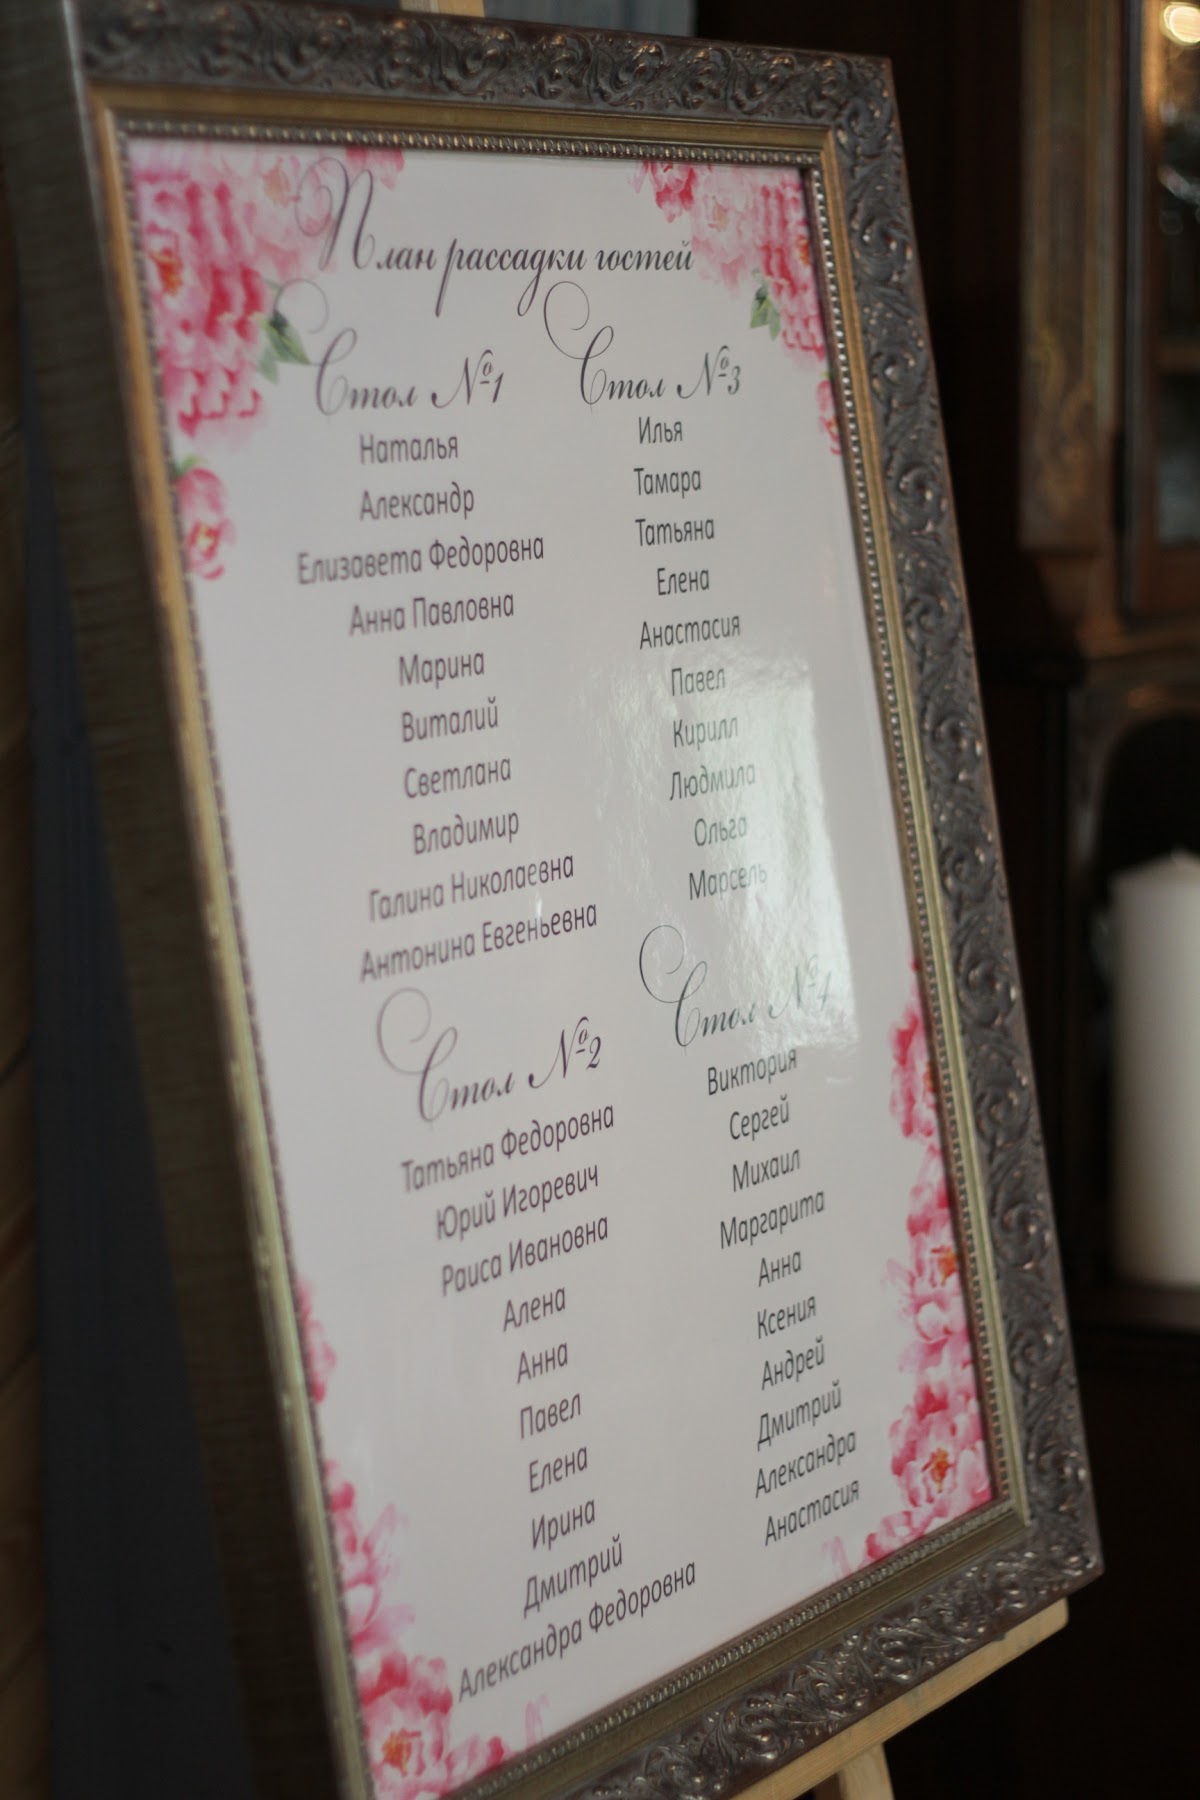 План рассадки гостей
Стол №1
Наталья
Александр
Елизавета Федоровна
Анна Павловна
Марина
Виталий
Светлана
Владимир
Галина Николаевна
Антонина Евгеньевна
Стол №2
Татьяна Федоровна
Юрий Игоревич
Раиса Ивановна
Алена
Анна
Павел
Елена
Ирина
Дмитрий
Александра Федоровна
Стол №3
Илья
Тамара
Татьяна
Елена
Анастасия
Павел
Кирилл
Людмила
Ольга
Марсель
Стол №4
Виктория
Сергей
Михаил
Маргарита
Анна
Ксения
Андрей
Дмитрий
Александра
Анастасия